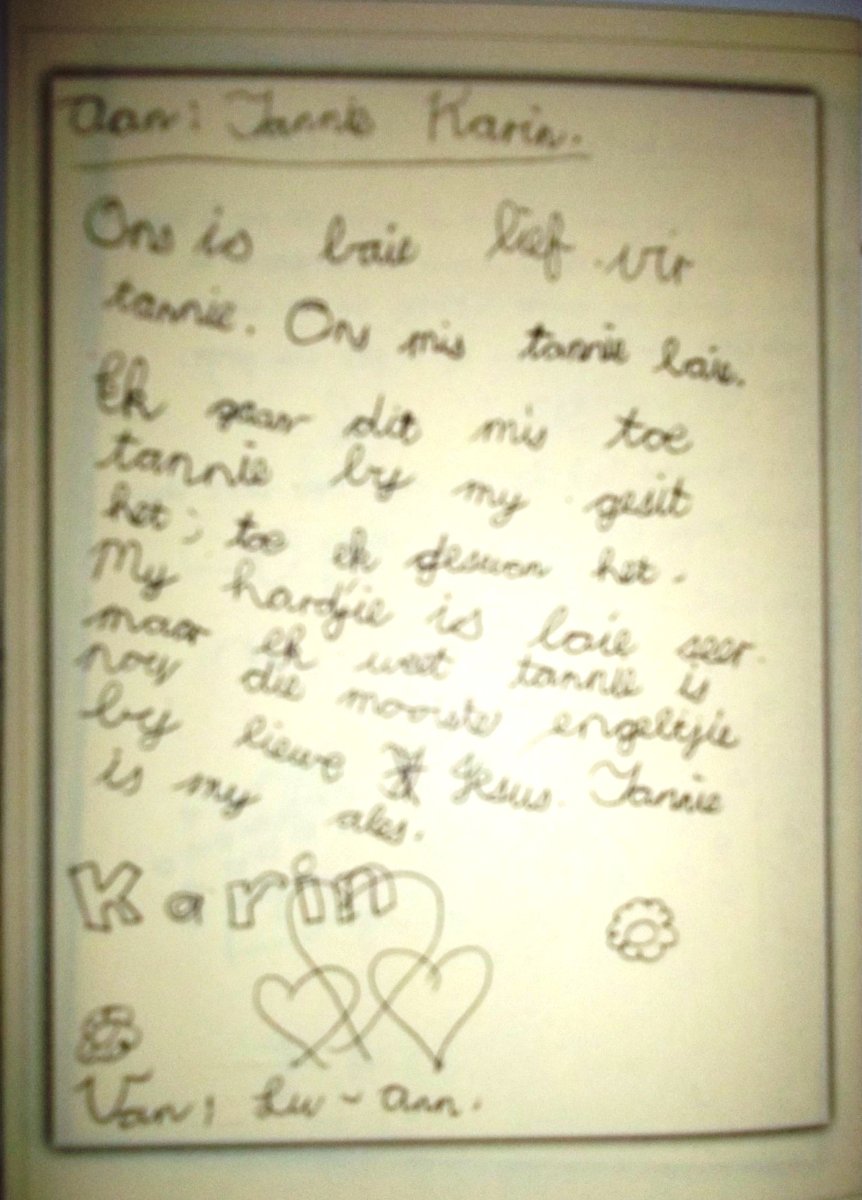 Aan: Tannie Karin.
Ons is baie lief vir
tannie. Ons mis tannie baie.
Ek gaan dit mis toe
tannie by my gesit
het; toe ek geswem het.
My hardjie is baie seer
maar ek weet tannie is
nou die mooiste engeltjie
by liewe Jesus. Tannie
is my ales.
Karin
Van: Lu-ann.